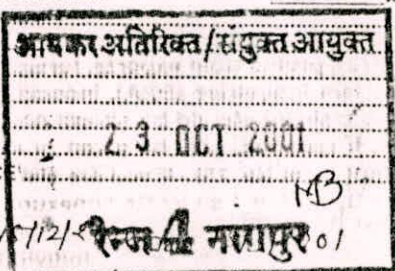 आयकर अतिरिक्त/संयुक्त आयुक्त
23 OCT 2001
NB
रेन्ज नसापुर 01